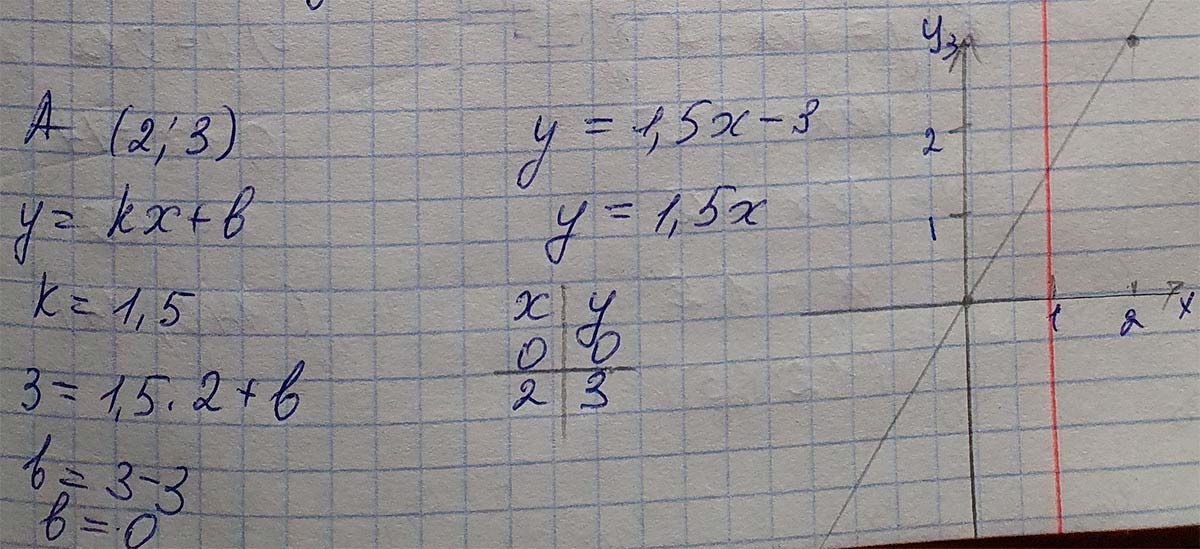 A (2; 3)
y = kx + b
k = 1,5
3 = 1,5 · 2 + b
b = 3 - 3
b = 0
y = 1,5x - 3
y = 1,5x
x y
0 0
2 3
y
3
2
1
1 2 x